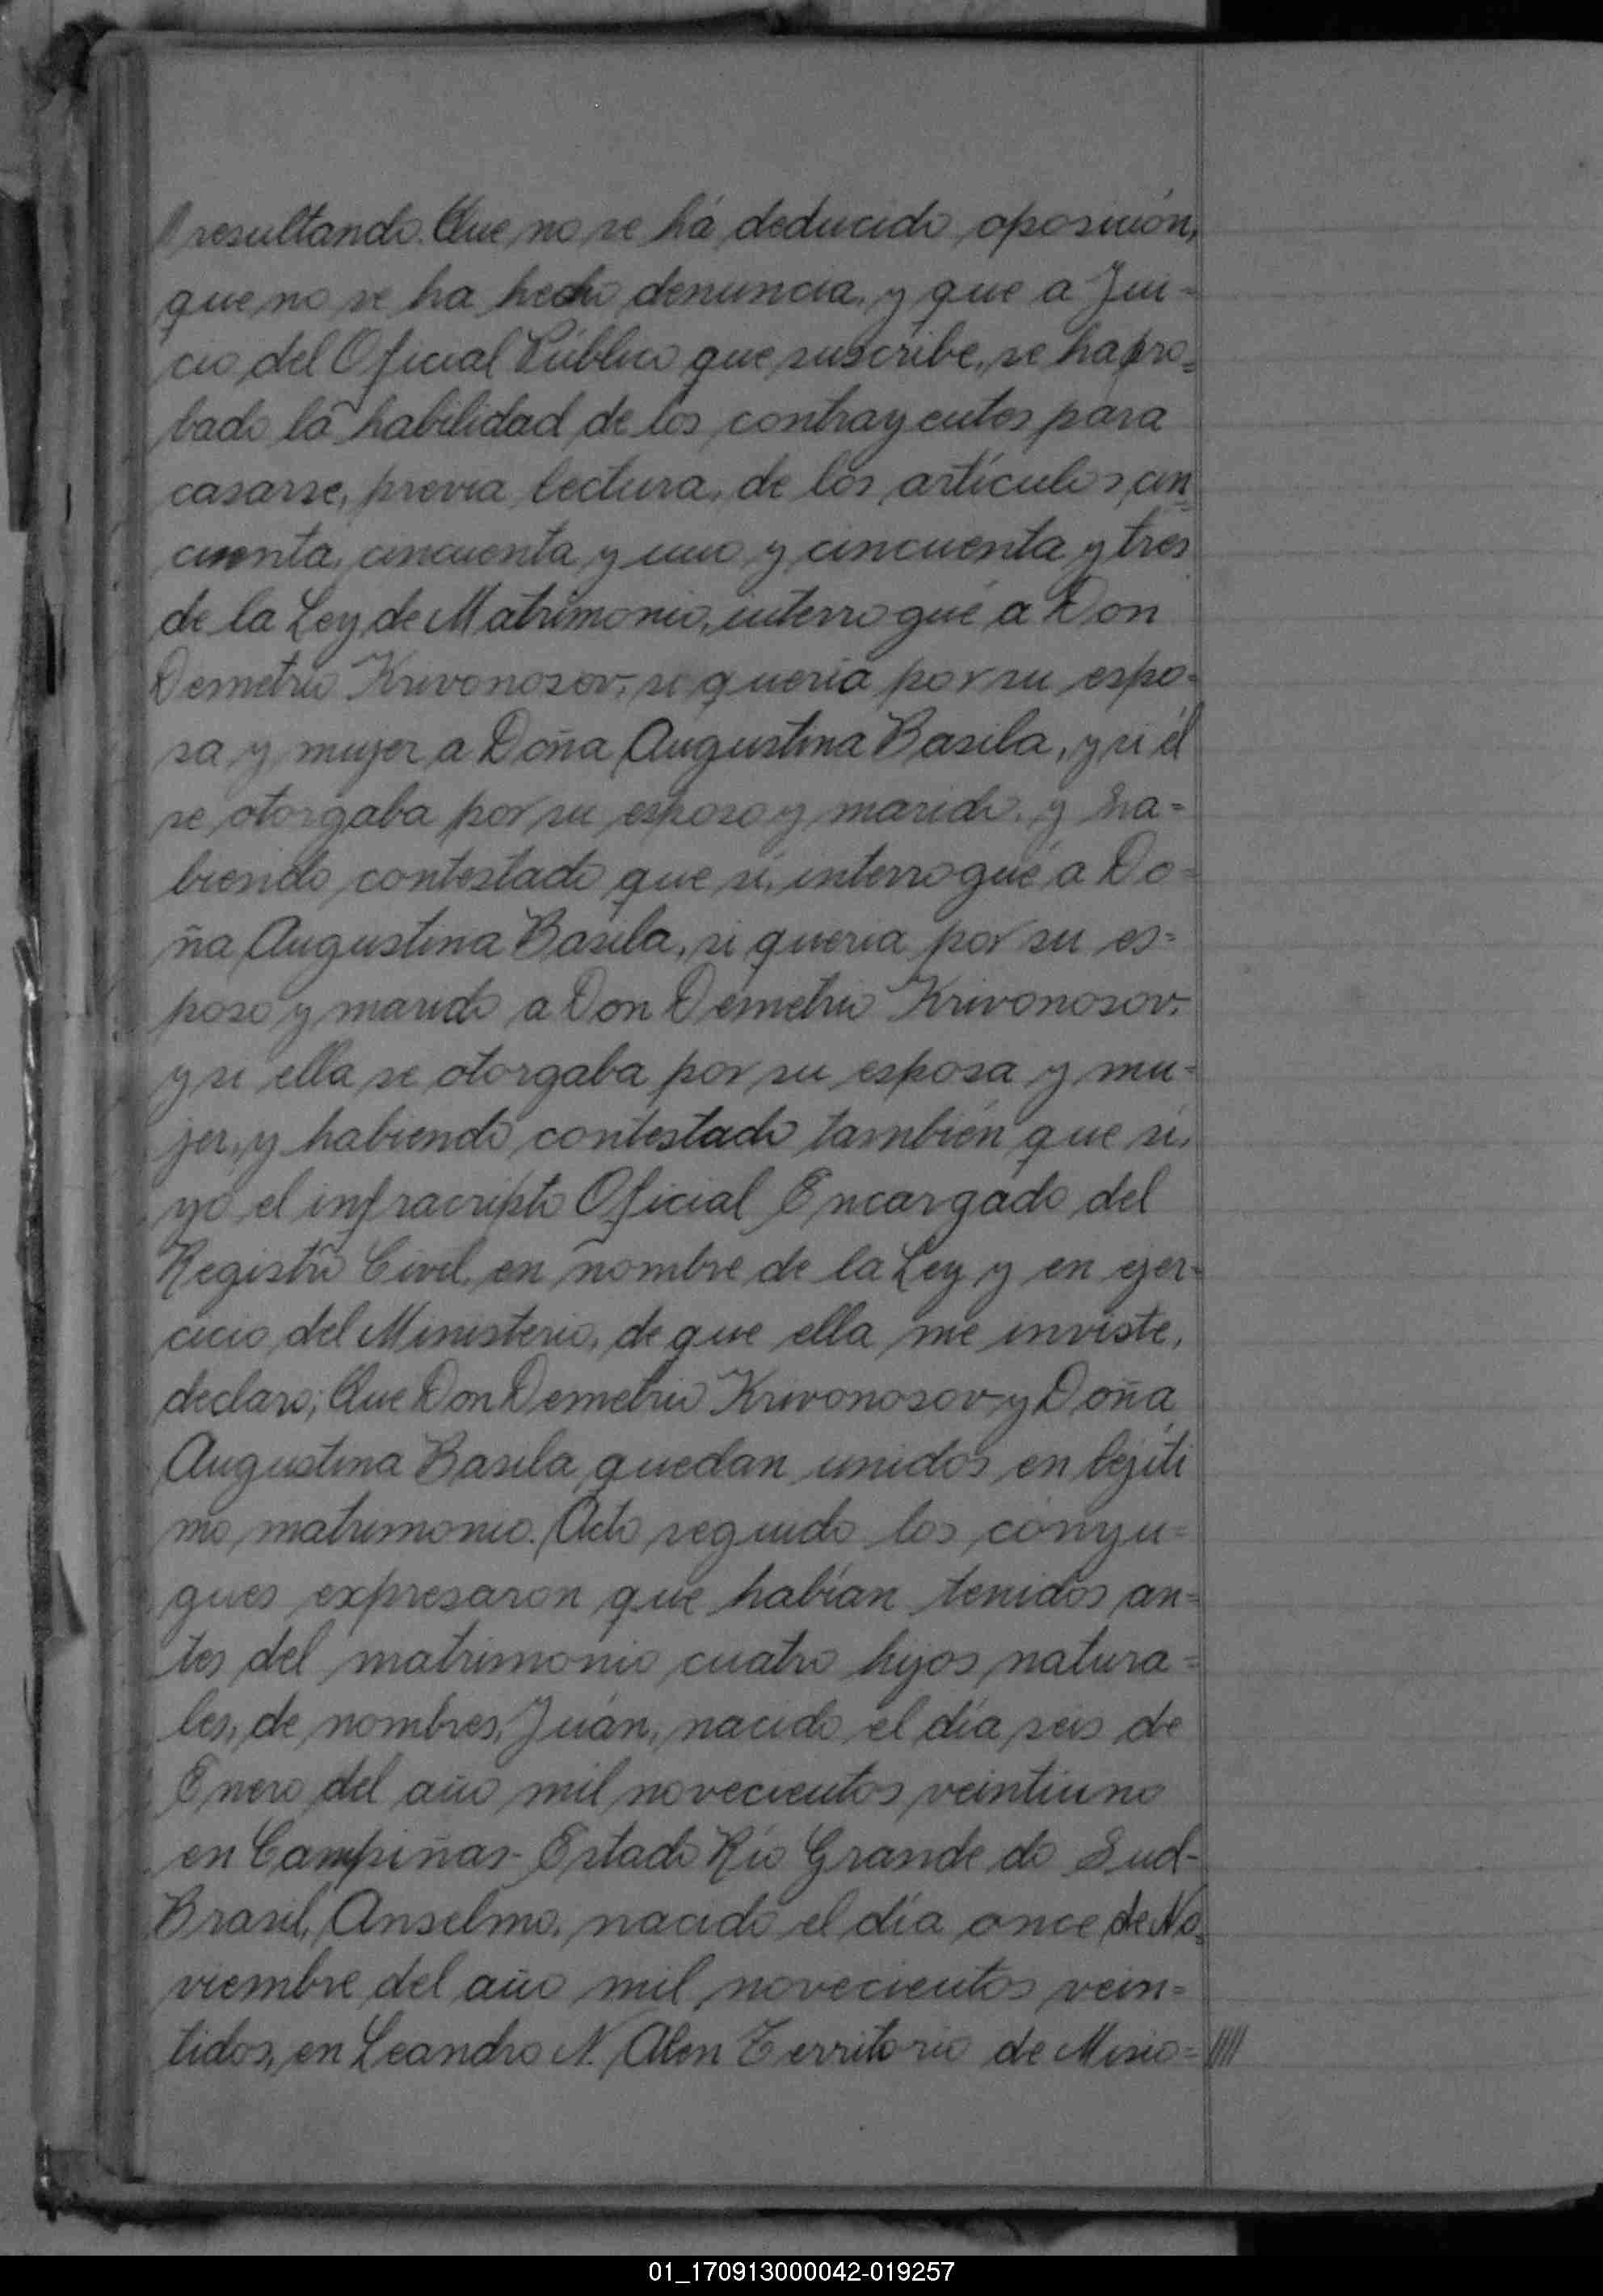 resultando. Que no se há deducido oposición,
que no se ha hecho denuncia, y que a Jui-
cio del Oficial Público que suscribe, se ha pro=
bado la habilidad de los contrayentes para
casarse, previa lectura, de los artículos, cin=
cuenta, cincuenta y uno y cincuenta y tres
de la Ley de Matrimonio, interrogué a Don
Demetrio Krivonosov, si quería por su espo-
sa y mujer a Doña Augustina Basila, y si él
se otorgaba por su esposo y marido, y ha=
biendo contestado que si, interrogué a Do=
ña Augustina Basila, si queria por su es=
poso y marido a Don Demetrio Krivonosov,
y si ella se otorgaba por su esposa y mu-
jer, y habiendo contestado también que si,
yo el infracripto Oficial Encargado del
Registro Civil, en nombre de la Ley y en ejer-
cicio del Ministerio, de que ella me inviste,
declaro; Que Don Demetrio Krivonosov y Doña
Augustina Basila quedan unidos en lejíti
mo matrimonio. Acto seguido los cónyu=
gues expresaron que habían tenidos an=
tes del matrimonio cuatro hijos natura=
les, de nombres, Juán, nacido el día seis de
Enero del año mil novecientos veintiuno
en Campiñas- Estado Río Grande do Sud-
Brasil, Anselmo, nacido el día once de No=
viembre del año mil novecientos vein=
tidos, en Leandro N. Alen Territorio de Misio= ////
01_170913000042-019257